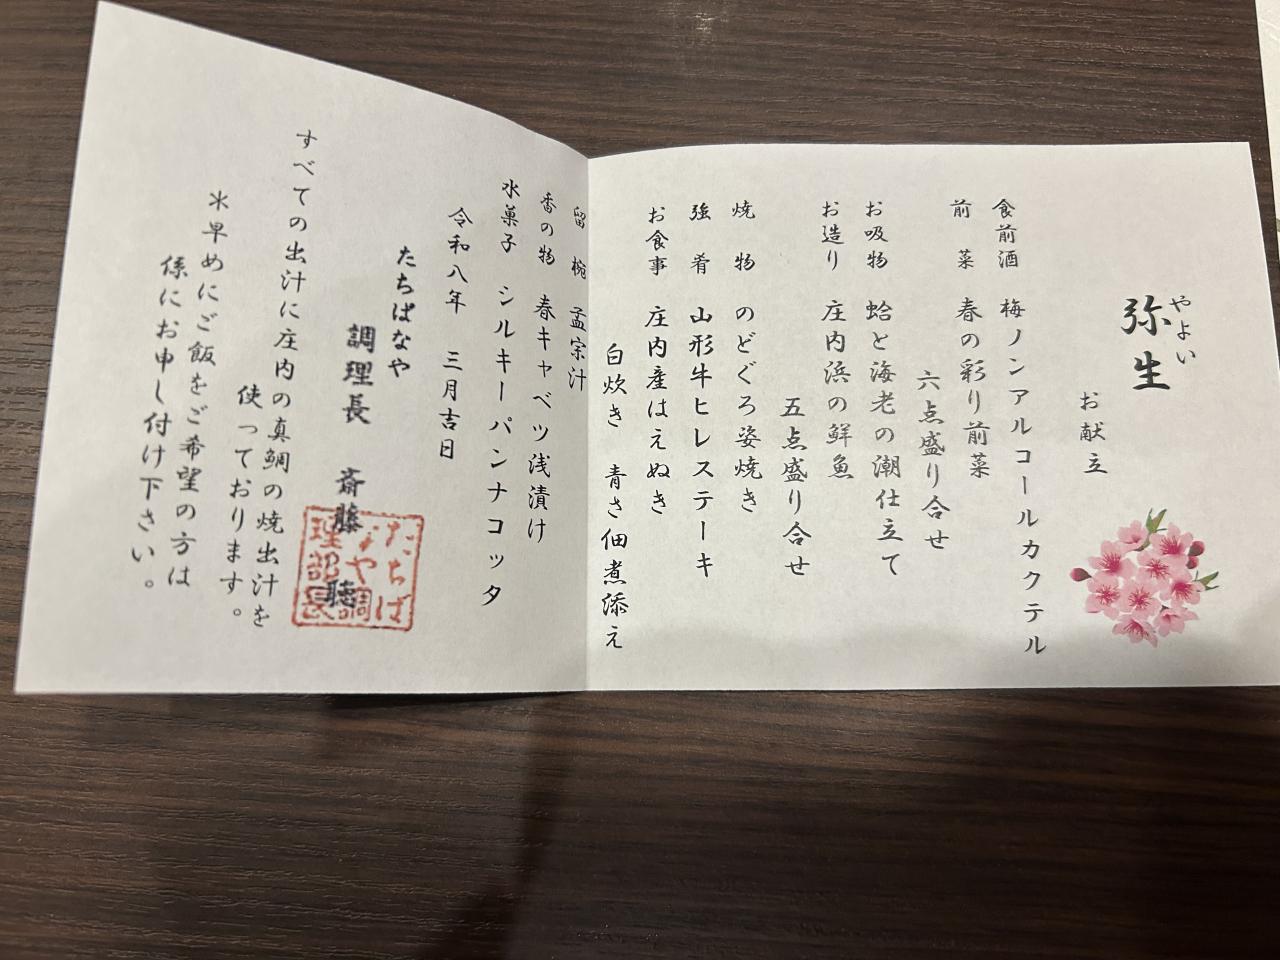 やよい
弥生
お献立
食前酒 梅ノンアルコールカクテル
前菜 春の彩り前菜
六点盛り合せ
お吸物 蛤と海老の潮仕立て
お造り 庄内浜の鮮魚
五点盛り合せ
焼物 のどぐろ姿焼き
強肴 山形牛ヒレステーキ
お食事 庄内産はえぬき
白炊き 青さ佃煮添え
留椀 孟宗汁
香の物 春キャベツ浅漬け
水菓子 シルキーパンナコッタ
令和八年 三月吉日
たちばなや
調理長 斎藤 聡
たちば
なや調
理部長
すべての出汁に庄内の真鯛の焼出汁を
使っております。
*早めにご飯をご希望の方は
係にお申し付け下さい。